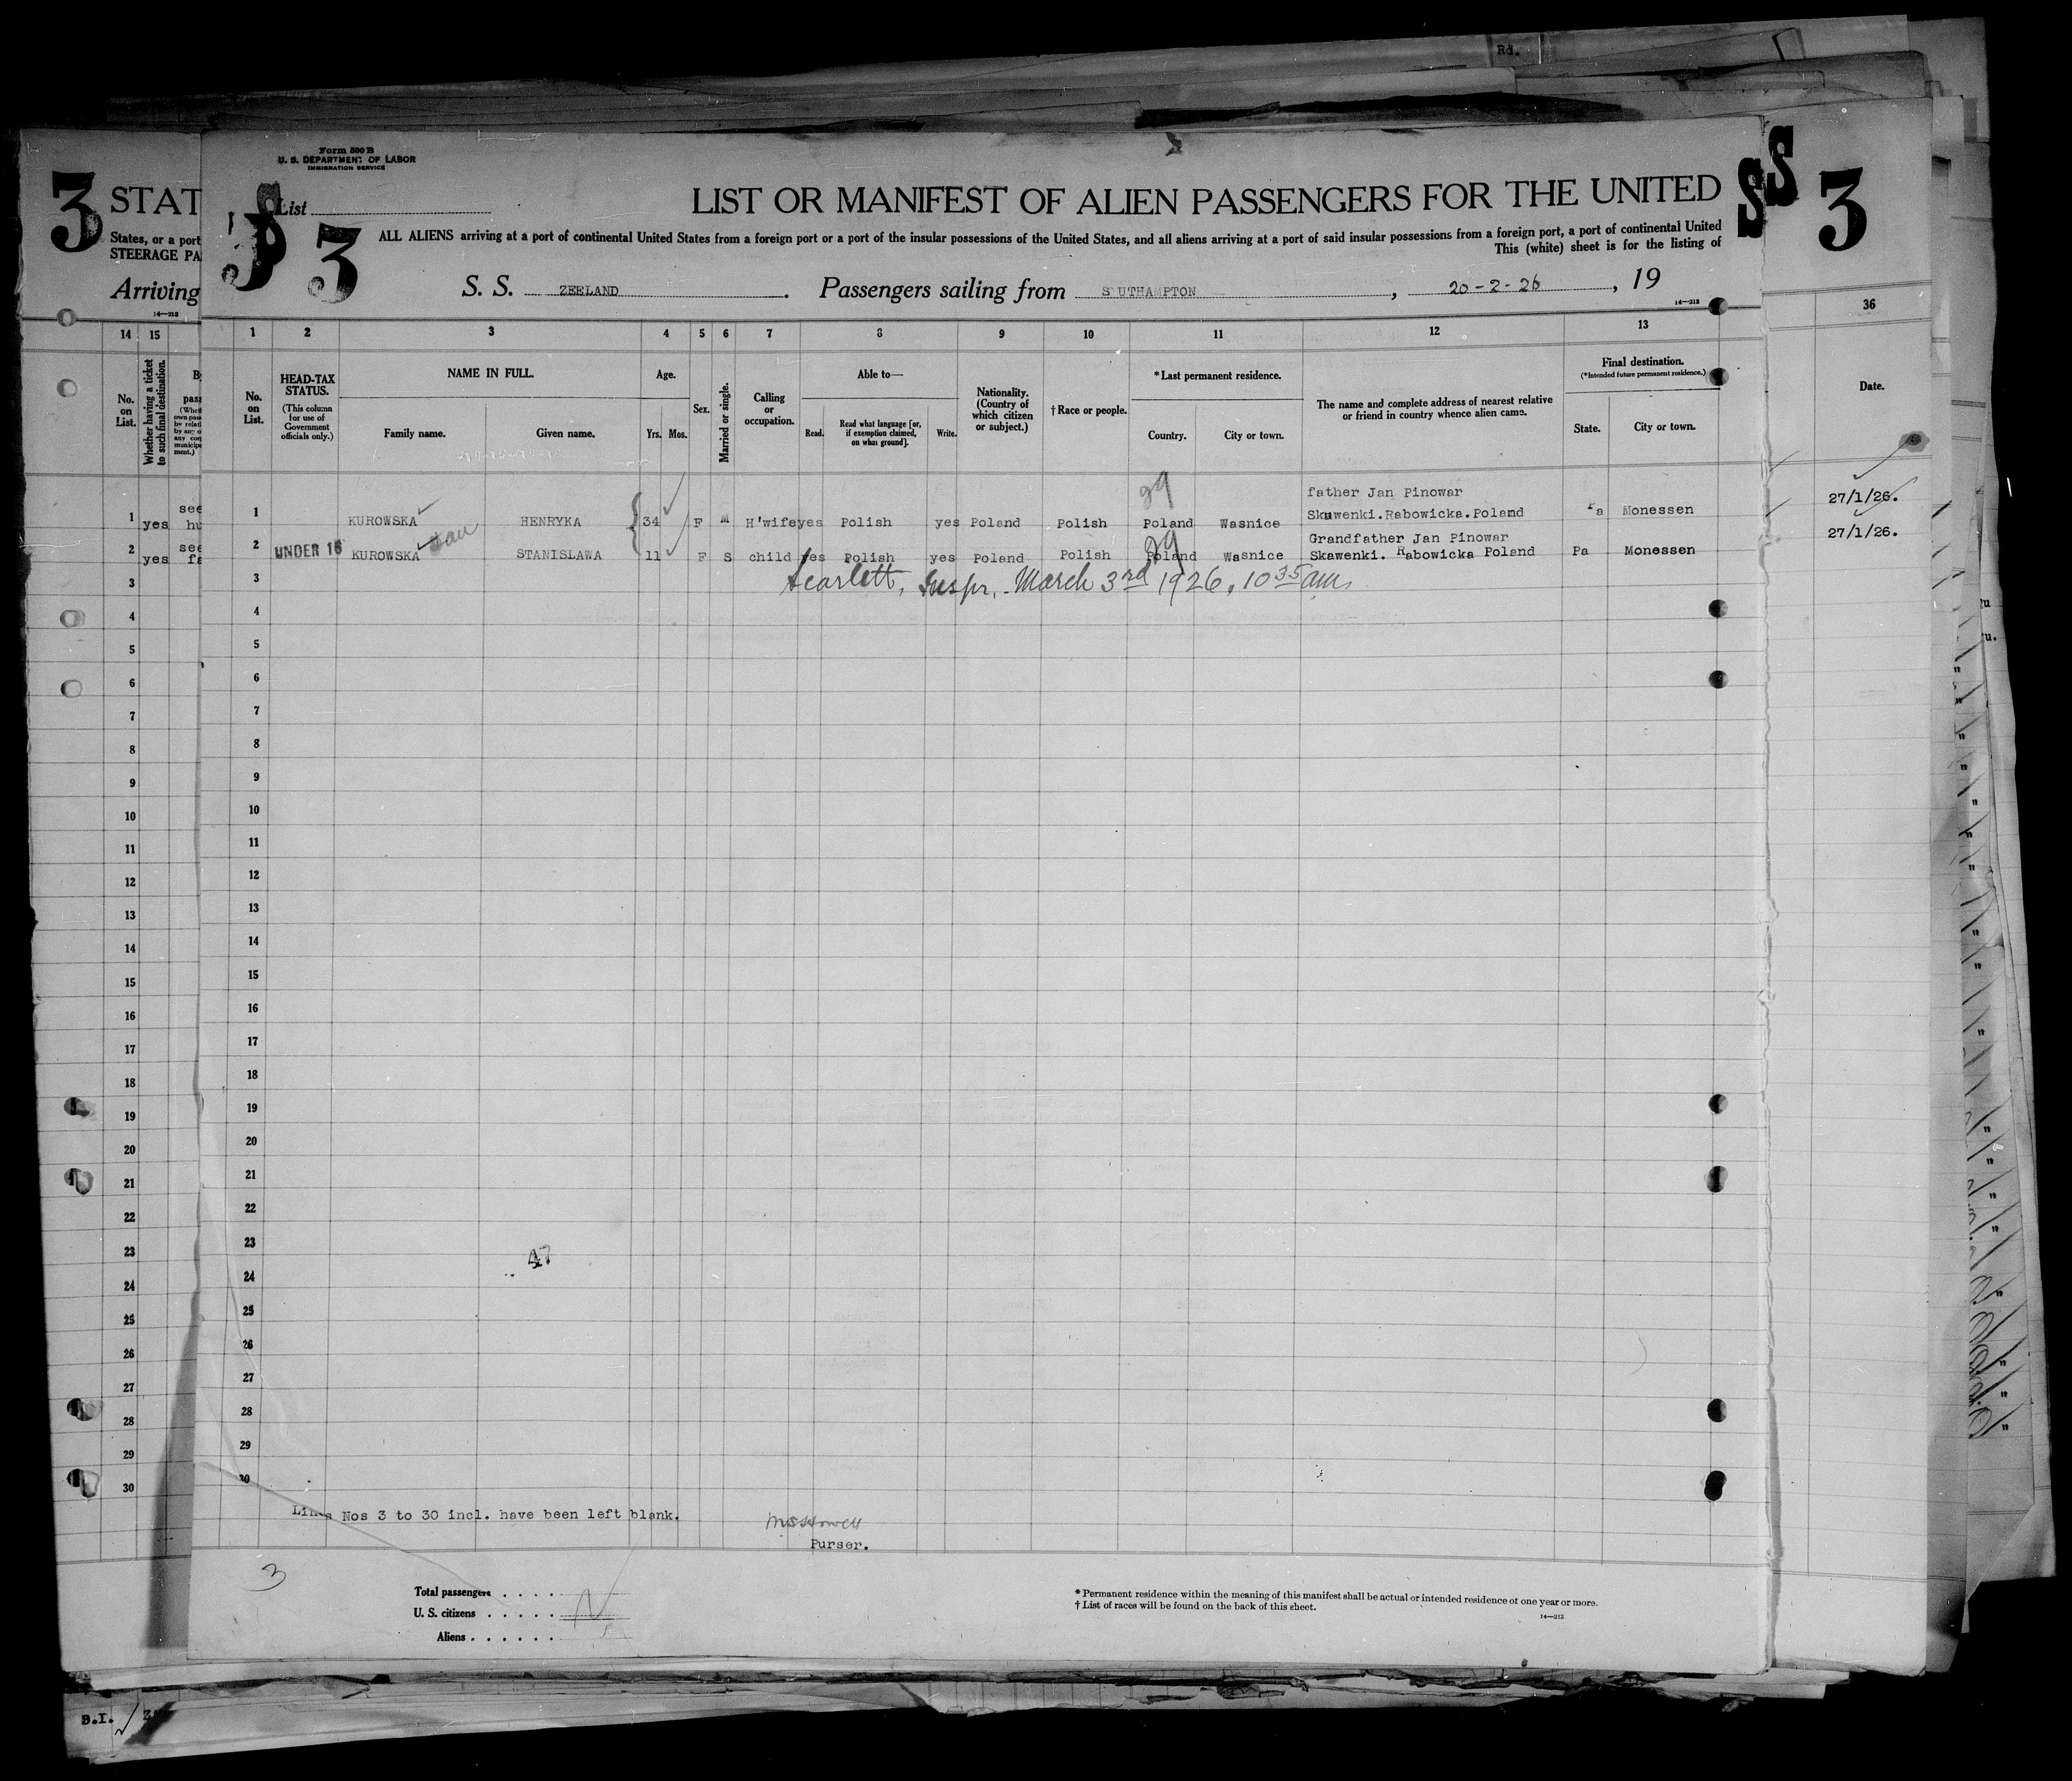 Rd.
Form 500 B
U. S. DEPARTMENT OF LABOR
IMMIGRATION SERVICE
3 STAT
List
LIST OR MANIFEST OF ALIEN PASSENGERS FOR THE UNITED
S S 3
3
States, or a port
STEERAGE PA
ALL ALIENS arriving at a port of continental United States from a foreign port or a port of the insular possessions of the United States, and all aliens arriving at a port of said insular possessions from a foreign port, a port of continental United
This (white) sheet is for the listing of
Arriving
S. S. ZEELAND. Passengers sailing from SOUTHAMPTON, 20-2-26, 19
14—213
14—213
14 15 1 2 3 4 5 6 7 8 9 10 11 12 13 36
No. on List.
Whether having a ticket to such final destination.
No. on List.
HEAD-TAX STATUS.
(This column for use of Government officials only.)
NAME IN FULL.
Family name.
Given name.
Age.
Yrs. Mos.
Sex.
Married or single.
Calling or occupation.
Able to—
Read.
Read what language [or, if exemption claimed, on what ground].
Write.
Nationality. (Country of which citizen or subject.)
† Race or people.
*Last permanent residence.
Country.
City or town.
The name and complete address of nearest relative or friend in country whence alien came.
Final destination.
(*Intended future permanent residence.)
State.
City or town.
Date.
1 yes see hu
1 KUROWSKA HENRYKA 34 F M H'wife yes Polish yes Poland Polish Poland Wasnice father Jan Pinowar Skawenki.Rabowicka.Poland Pa Monessen 27/1/26.
2 yes see fa
2 UNDER 16 KUROWSKA dau STANISLAWA 11 F S child yes Polish yes Poland Polish Poland Wasnice Grandfather Jan Pinowar Skawenki. Rabowicka Poland Pa Monessen 27/1/26.
Scarlett, Inspr. March 3rd 1926, 10 35 am
3 3
4 4
5 5
6 6
7 7
8 8
9 9
10 10
11 11
12 12
13 13
14 14
15 15
16 16
17 17
18 18
19 19
20 20
21 21
22 22
23 23
47
24 24
25 25
26 26
27 27
28 28
29 29
30 30
Lines Nos 3 to 30 incl. have been left blank.
Purser.
3
Total passengers
U. S. citizens
Aliens
* Permanent residence within the meaning of this manifest shall be actual or intended residence of one year or more.
† List of races will be found on the back of this sheet.
14—213
B.I.